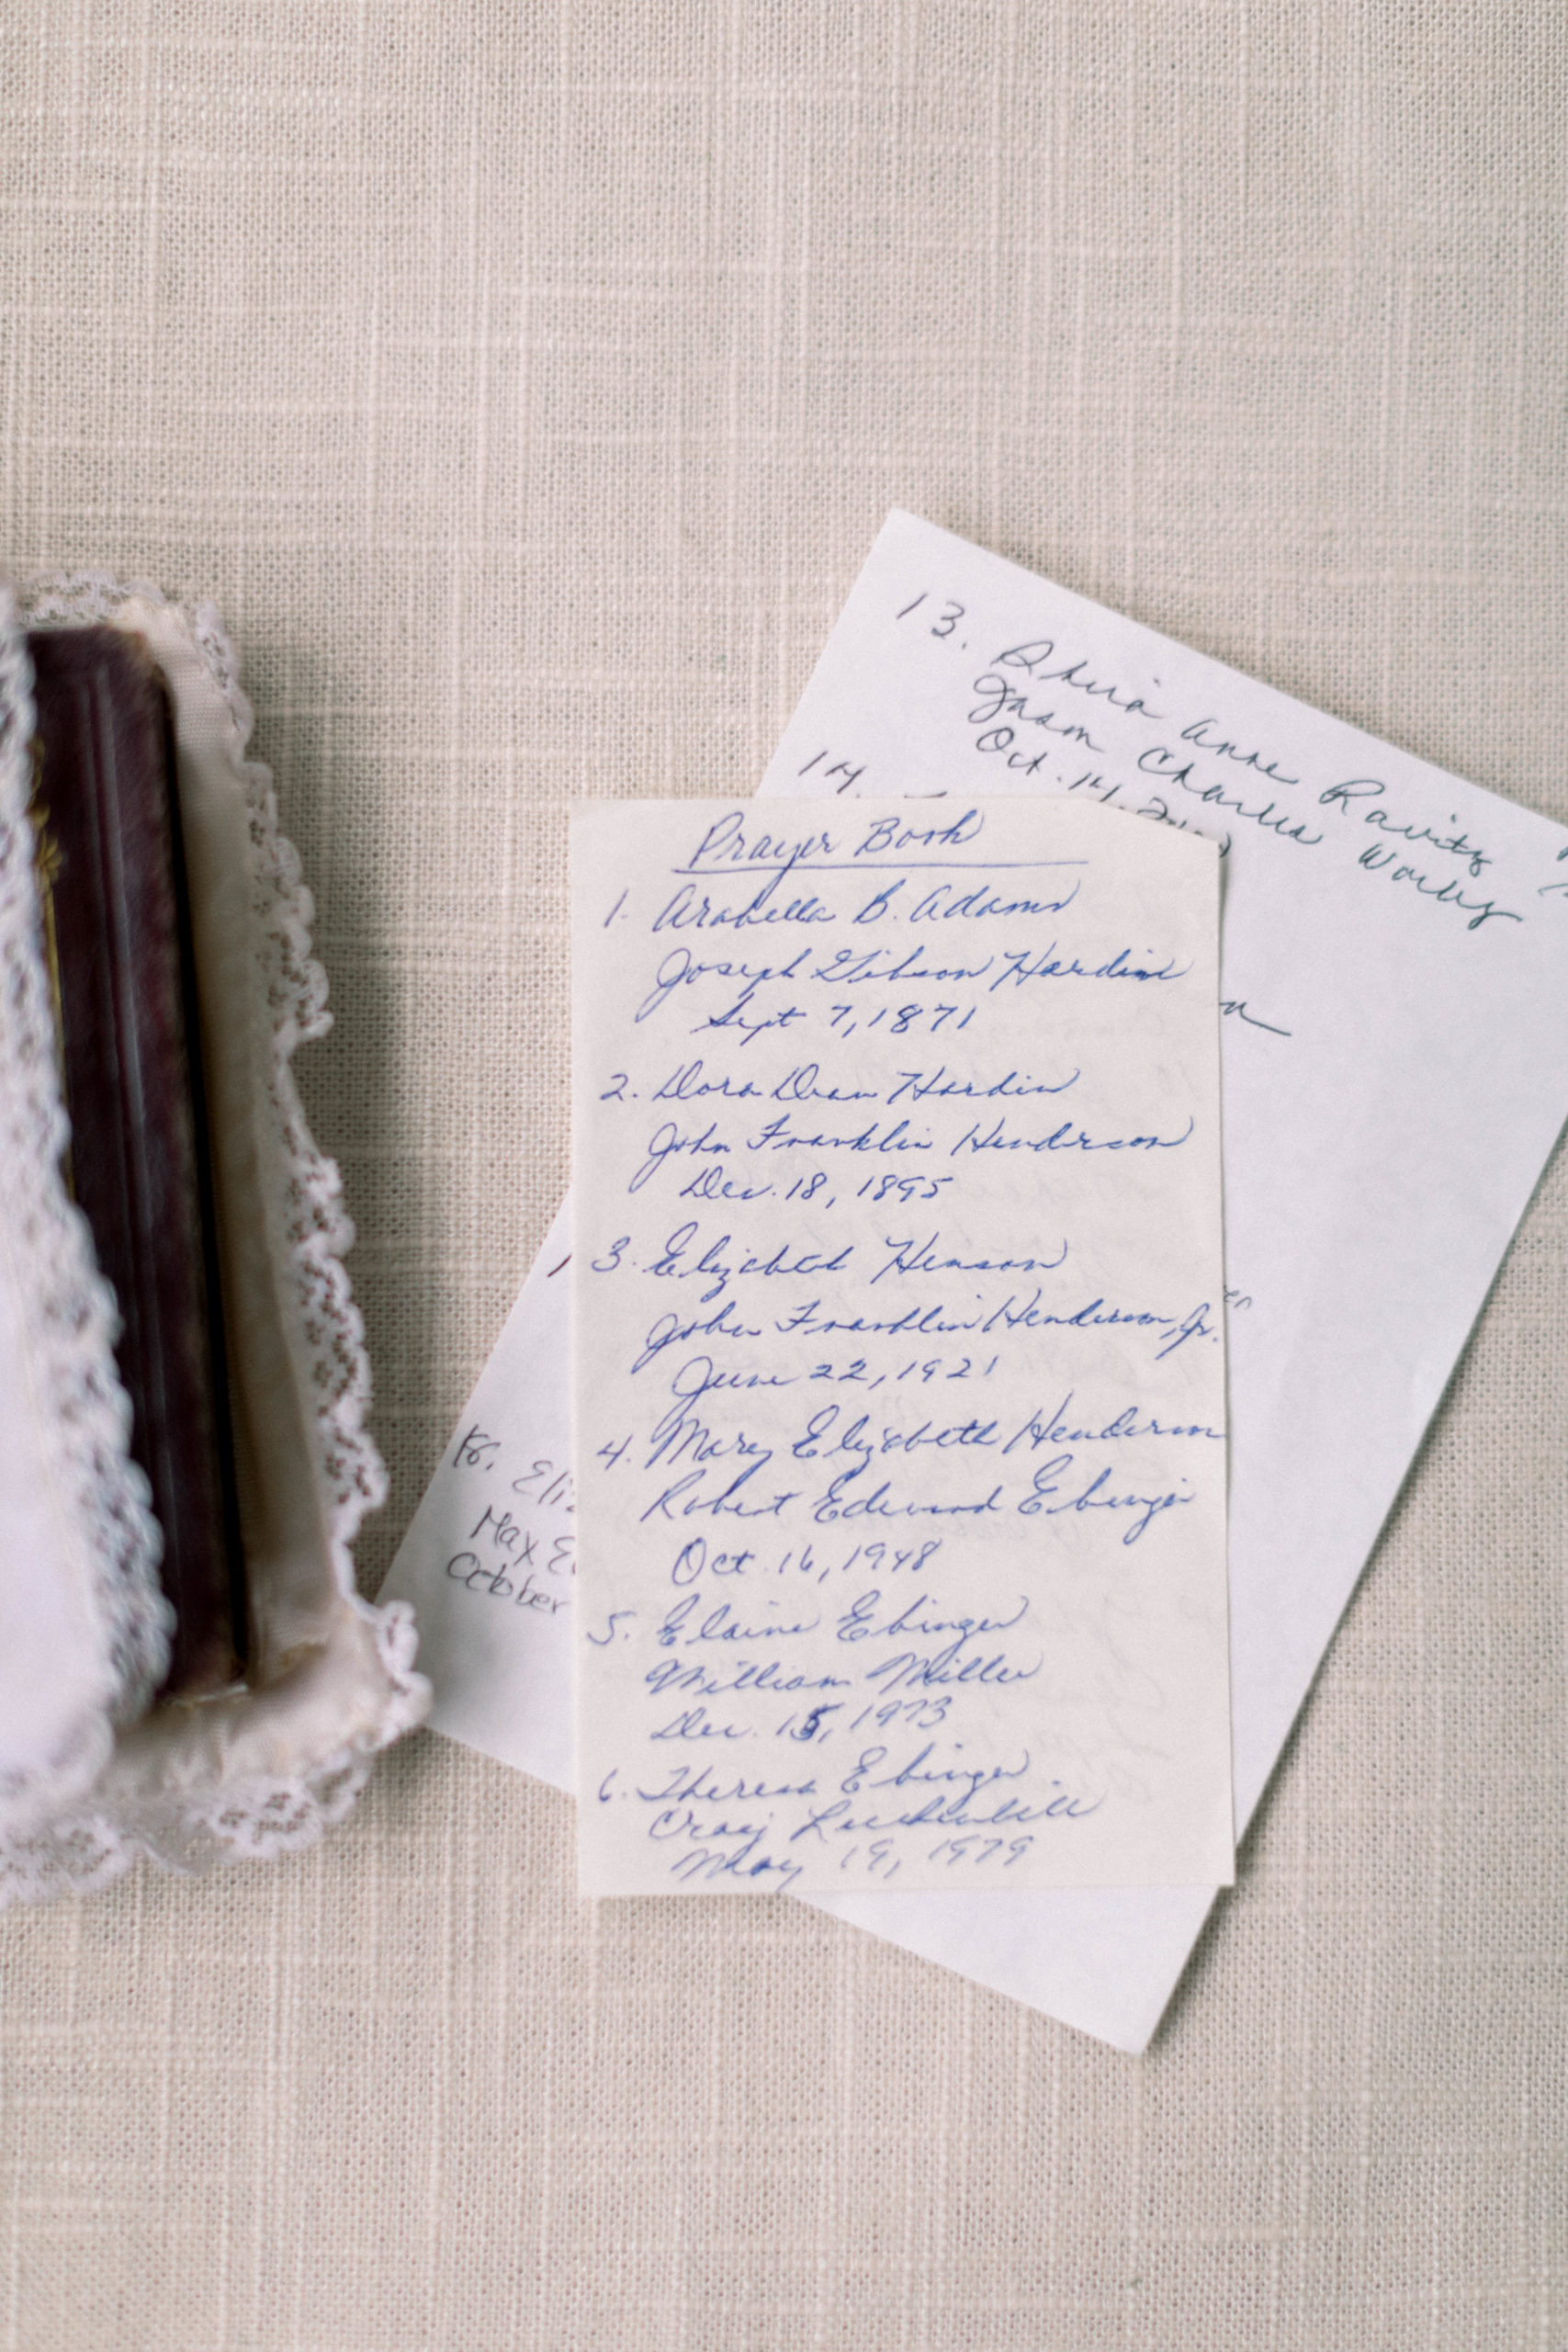 13. Shira Anne Ravitz
Jason Charles Worley
Oct. 14,
14.
Prayer Book
1. Arabella B. Adams
Joseph Gibson Hardin
Sept 7, 1871
2. Dora Dean Hardin
John Franklin Henderson
Dec. 18, 1895
3. Elizabeth Henson
John Franklin Henderson, Jr.
June 22, 1921
4. Mary Elizabeth Henderson
Robert Edward Ebinger
Oct 16, 1948
5. Elaine Ebinger
William Miller
Dec. 15, 1973
6. Theresa Ebinger
Craig
May 19, 1979
Max
October